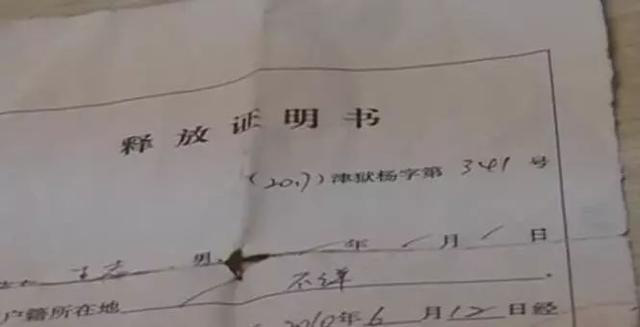 释放证明书
(2017)津狱杨字第341号
男 年 月 日
户籍所在地 不详
2010年6月12日经